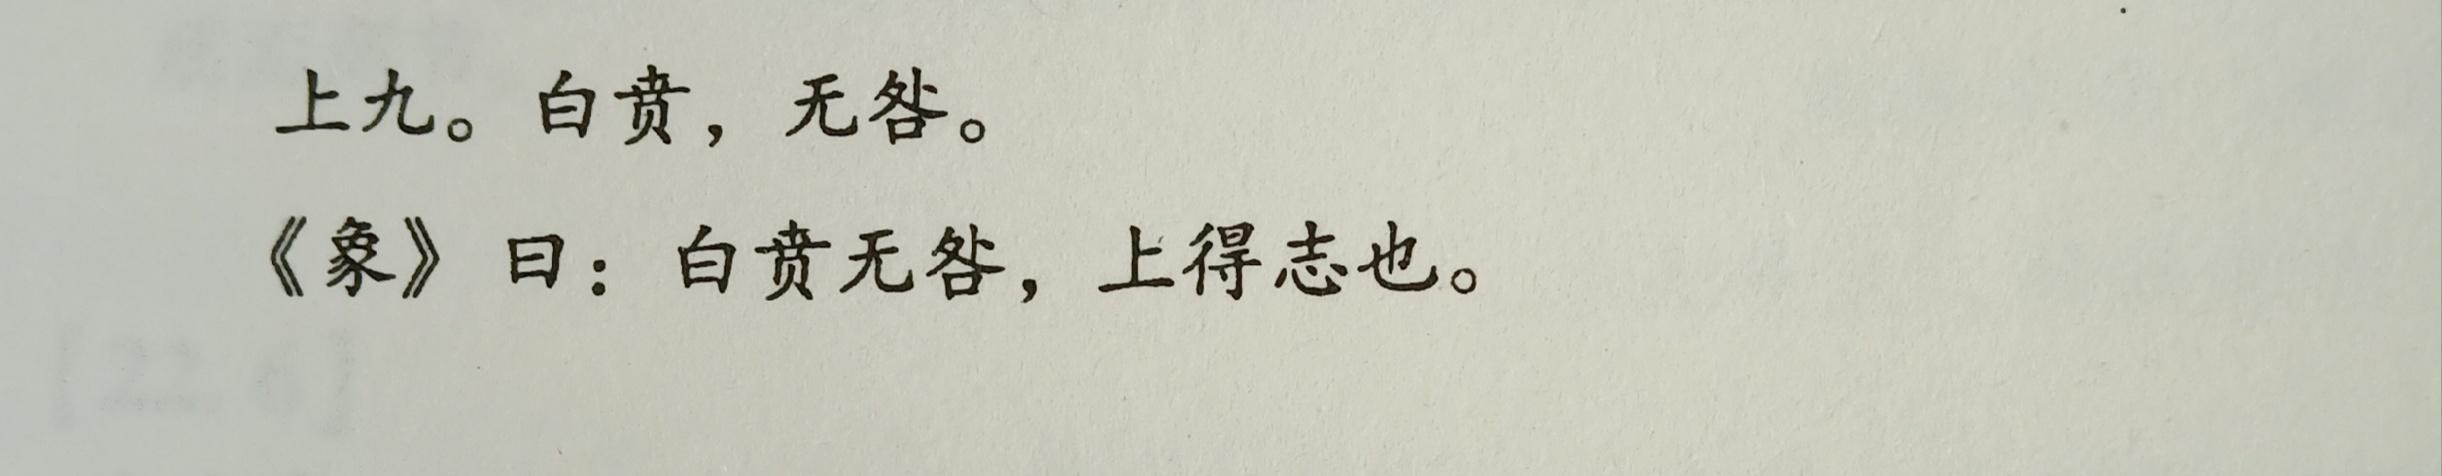 上九。白贲，无咎。
《象》曰：白贲无咎，上得志也。